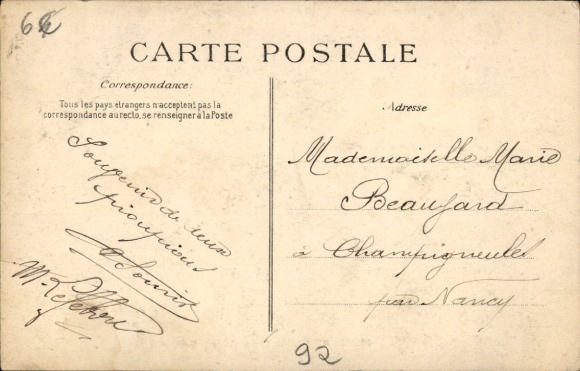 CARTE POSTALE
Correspondance:
Tous les pays étrangers n'acceptent pas la
correspondance au recto, se renseigner à la Poste
Souvenir de deux
pioupious
M. Lefebvre
Adresse
Mademoiselle Marie
Beaugard
à Champigneulles
par Nancy
92